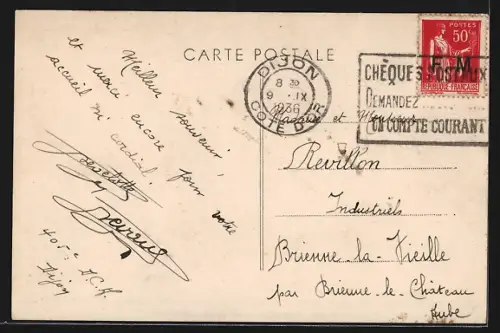 CARTE POSTALE
Meilleur souvenir,
et merci encore pour votre
accueil si cordial!
405e D.C.A.
Dijon
DIJON
8 30
9 - IX
1936
COTE D'OR
CHÈQUES POSTAUX
DEMANDEZ
UN COMPTE COURANT
POSTES
50c
F M
REPUBLIQUE FRANÇAISE
Madame et Monsieur
Revillon
Industriels
Brienne-la-Vieille
par Brienne-le-Château
Aube